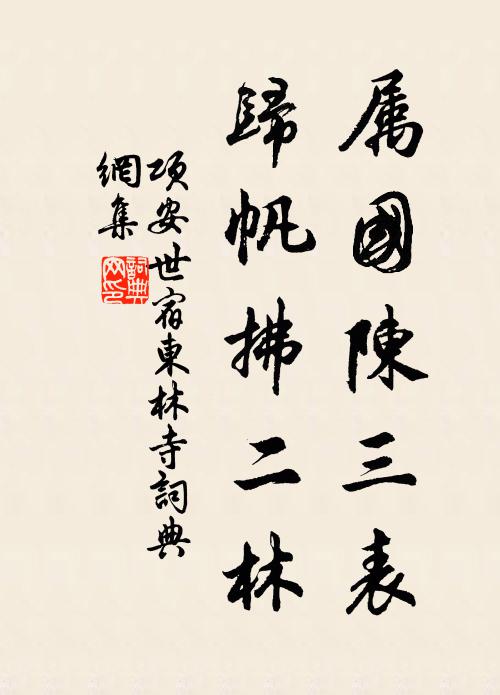 属國陳三表
歸帆拂二林
項安世宿東林寺詞典
網集
詞典
网印